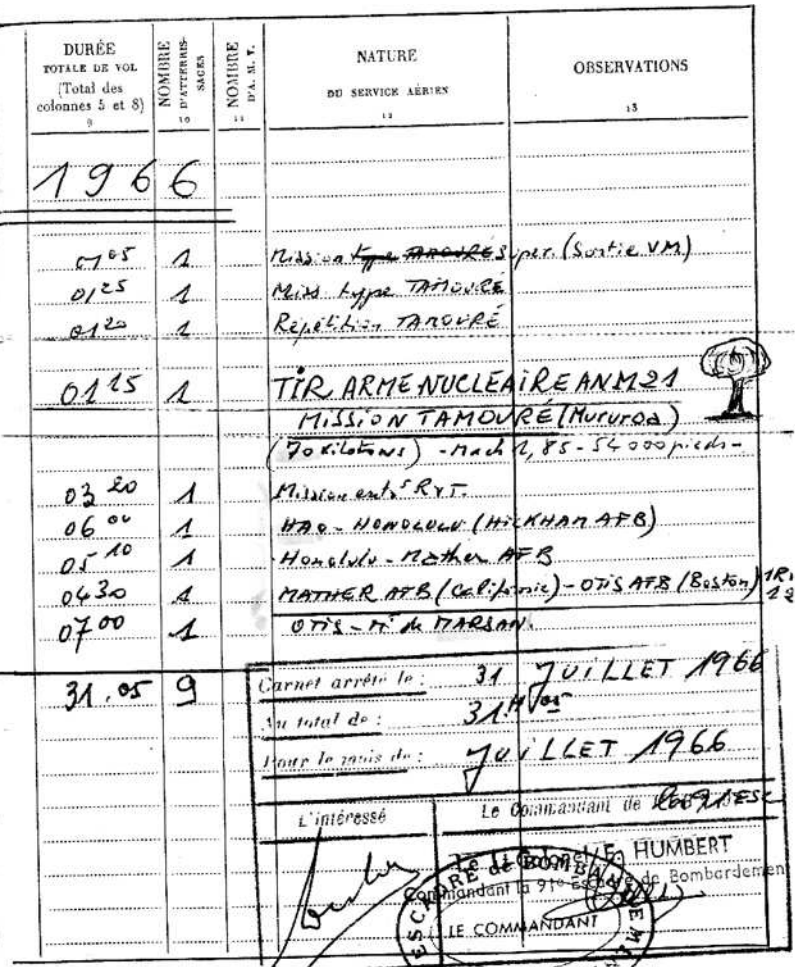 DURÉE
TOTALE DE VOL
(Total des
colonnes 5 et 8)
9
NOMBRE
D'ATTERRIS-
SAGES
10
NOMBRE
D'A. M. V.
11
NATURE
DU SERVICE AÉRIEN
12
OBSERVATIONS
13
1966
01 05 1 Mission type TAMOURÉ Super. (Sortie VM)
01 25 1 Miss type TAMOURÉ
01 20 1 Répétition TAMOURÉ
01 15 1 TIR ARME NUCLÉAIRE AN M21
MISSION TAMOURÉ (Mururoa)
(70 Kilotons) - Mach 1,85 - 54 000 pieds -
03 20 1 Mission RVT.
06 00 1 HAO - HONOLULU (HICKHAM AFB)
05 10 1 Honolulu - Mather AFB
04 30 1 MATHER AFB (Californie) - OTIS AFB (Boston)
07 00 1 OTIS - Mt de MARSAN.
31.05 9
Carnet arrêté le : 31 JUILLET 1966
Au total de : 31 H 05
Pour le mois de : JUILLET 1966
L'intéressé
Le Commandant de
Le Lt Colonel E. HUMBERT
Commandant la 91e Escadre de Bombardement
ESCADRE de BOMBARDEMENT
LE COMMANDANT